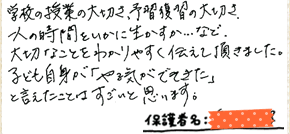 学校の授業の大切さ、予習復習の大切さ、
一人の時間をいかに生かすか…など、
大切なことをわかりやすく伝えて頂きました。
子ども自身が「やる気がでてきた」
と言えたことはすごいと思います。
保護者名: